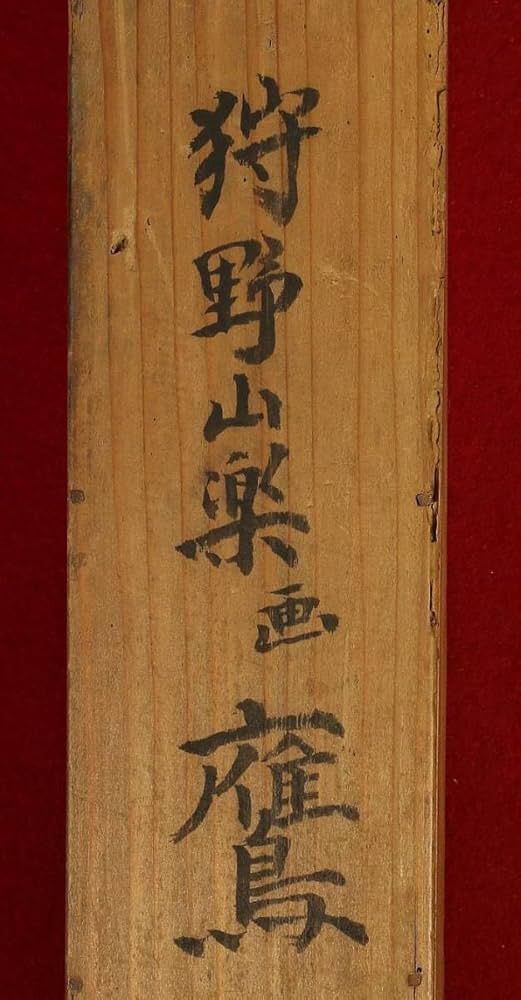 狩野山楽画 鷹